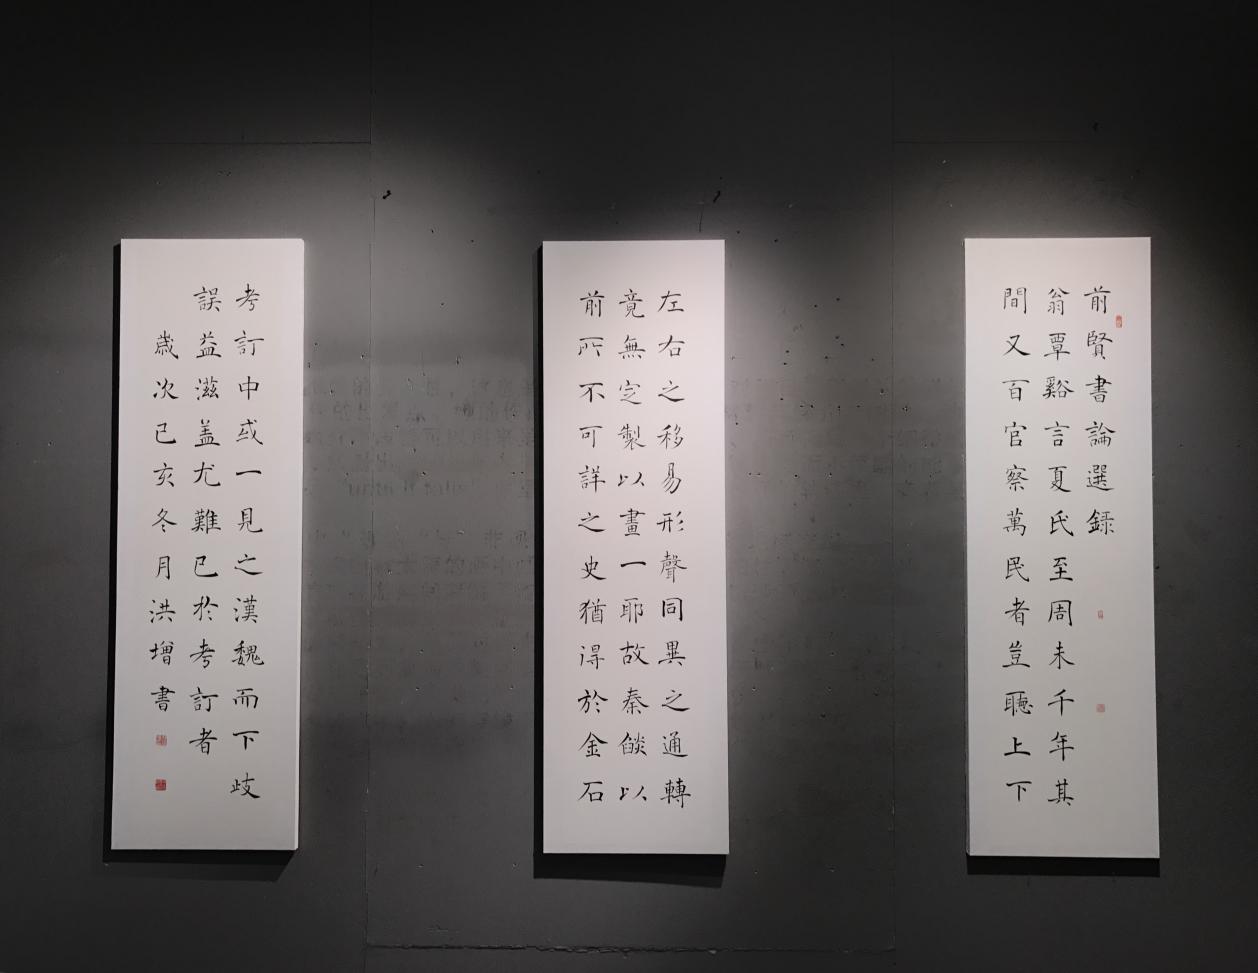 前賢書論選録
翁覃谿言夏氏至周末千年其
間又百官察萬民者豈聽上下
左右之移易形聲同異之通轉
竟無定製以畫一耶故秦燄以
前所不可詳之史猶得於金石
考訂中或一見之漢魏而下歧
誤益滋盖尤難已於考訂者
歲次己亥冬月洪增書